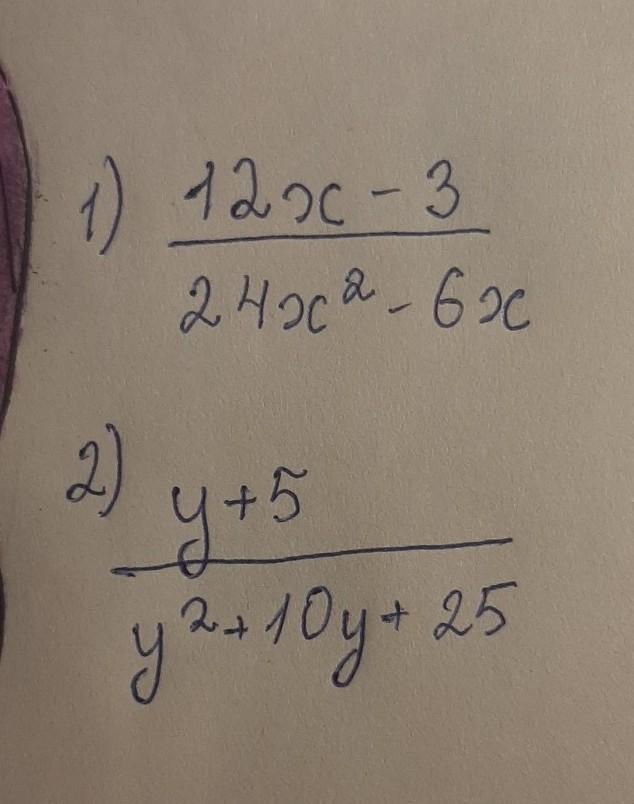 1) 12x - 3
24x² - 6x
2) y + 5
y² + 10y + 25